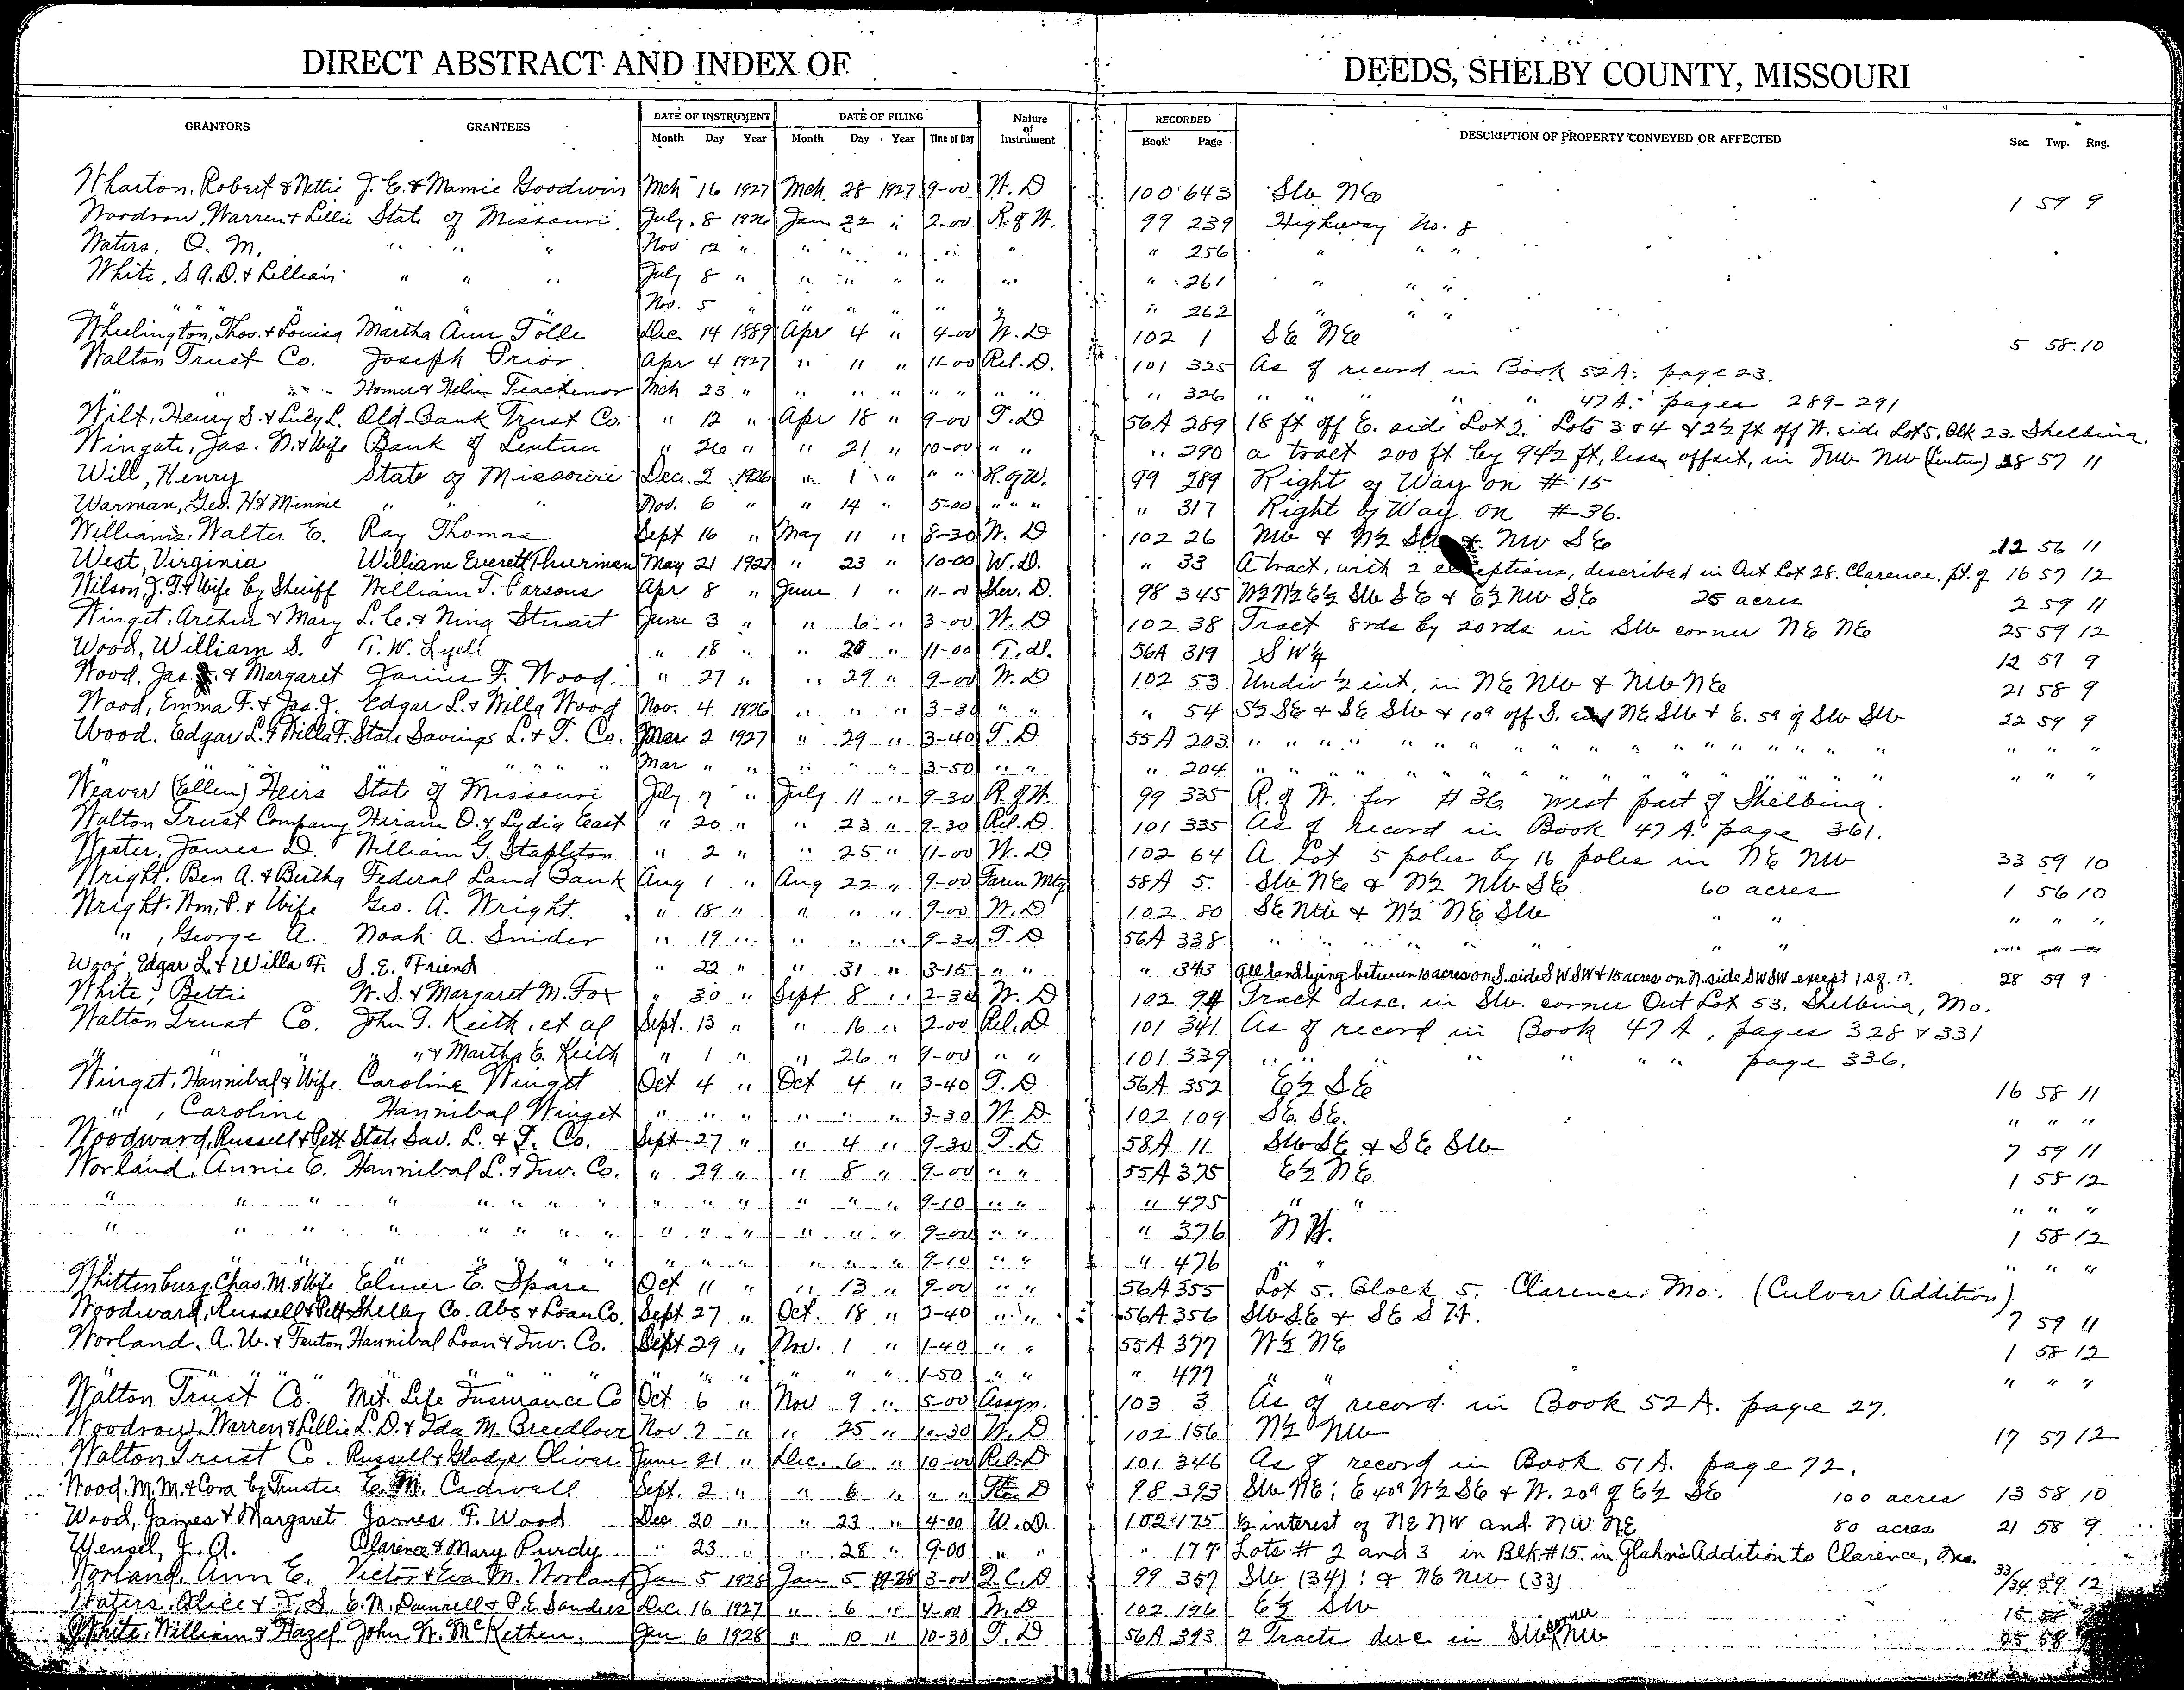 DIRECT ABSTRACT AND INDEX OF DEEDS, SHELBY COUNTY, MISSOURI
GRANTORS GRANTEES DATE OF INSTRUMENT DATE OF FILING Nature of Instrument RECORDED DESCRIPTION OF PROPERTY CONVEYED OR AFFECTED Sec. Twp. Rng.
Month Day Year Month Day Year Time of Day Book Page
Wharton, Robert & Nettie J. E. & Mamie Goodwin Mch 16 1927 Mch. 28 1927 9-00 W. D 100 643 SW NE 1 59 9
Woodrow, Warren & Lillie State of Missouri July 8 1926 Jan 22 " 2-00 R. of W. 99 239 Highway No. 8
Waters, O. M. " " " Nov 12 " " " " " " " 256 " " "
White, S A. D. & Lillian " " " July 8 " " " " " " " 261 " " "
" " " " " " Nov. 5 " " " " " " " 262 " " "
Wheelington, Thos. & Louisa Martha Ann Tolle Dec. 14 1889 Apr 4 " 4-00 W. D 102 1 SE NE 5 58 10
Walton Trust Co. Joseph Prior Apr 4 1927 " 11 " 11-00 Rel. D. 101 325 As of record in Book 52A. page 23.
" " " Homer & Helen Mch 23 " " " " " " " " 326 " " " " " 47 A. pages 289-291
Wilt, Henry S. & Lucy L. Old Bank Trust Co. " 12 " Apr 18 " 9-00 T. D 56A 289 18 ft off E. side Lot 2. Lots 3 & 4 & 2½ ft off W. side Lot 5, Blk 23. Shelbina.
Wingate, Jas. N. & Wife Bank of Lentner " 26 " " 21 " 10-00 " " " 290 a tract 200 ft by 942 ft, less offset, in NW NW (Lentner) 28 57 11
Will, Henry State of Missouri Dec. 2 1926 " 1 " " " R. of W. 99 289 Right of Way on # 15
Warman, Geo. H. & Minnie " " " Nov. 6 " " 14 " 5-00 " " " " 317 Right of Way on # 36.
Williams, Walter E. Ray Thomas Sept 16 " May 11 " 8-30 W. D 102 26 NW & N½ SW & NW SE 12 56 11
West, Virginia William Everett Thurman May 21 1927 " 23 " 10-00 W. D. " 33 A tract, with 2 exceptions, described in Out Lot 28. Clarence, pt. of 16 57 12
Wilson, J. T. & Wife by Sheriff William T. Carsous Apr 8 " June 1 " 11-00 Sher. D. 98 345 W½ W½ E½ SW SE & E½ NW SE 25 acres 2 59 11
Winget, Arthur & Mary L. C. & Ning Stuart June 3 " " 6 " 3-00 W. D 102 38 Tract 8 rds by 20 rds in SW corner NE NE 25 59 12
Wood, William S. T. W. Lyell " 18 " " 20 " 11-00 T. D. 56A 319 SW¼ 12 59 9
Wood, Jas. & Margaret James F. Wood " 27 " " 29 " 9-00 W. D 102 53 Undiv ½ int. in NE NW & NW NE 21 58 9
Wood, Emma F. & Jas. J. Edgar L. & Willa Wood Nov. 4 1926 " " " 3-30 " " " 54 S½ SE & SE SW & 10a off S. end NE SW & E. 5a of SW SW 22 59 9
Wood. Edgar L. & Willa F. State Savings L. & T. Co. Mar 2 1927 " 29 " 3-40 T. D 55A 203 " " " " " " " " " " " " " " " "
" " " " " " " " Mar " " " " " 3-50 " " " 204 " " " " " " " " " " " " " " " "
Weaver (Ellen) Heirs State of Missouri July 7 " July 11 " 9-30 R. of W. 99 335 R. of W. for # 36 west part of Shelbina.
Walton Trust Company Hiram O. & Lydia East " 20 " " 23 " 9-30 Rel. D 101 335 As of record in Book 47 A. page 361.
Wester, James D. William G. Stapleton " 2 " " 25 " 11-00 W. D 102 64 A Lot 5 poles by 16 poles in NE NW 33 59 10
Wright, Ben A. & Bertha Federal Land Bank Aug 1 " Aug 22 " 9-00 Farm Mtg 58A 5. SW NE & N½ NW SE 60 acres 1 56 10
Wright, Wm. P. & Wife Geo. A. Wright " 18 " " " " 9-00 W. D 102 80 SE NW & N½ NE SW " " " " "
" , George A. Noah A. Snider " 19 " " " " 9-30 T. D 56A 338 " " " " " " " "
Wood, Edgar L. & Willa F. S. E. Friend " 22 " " 31 " 3-15 " " " 343 All land lying between 10 acres on S. side SW SW & 15 acres on N. side SW SW except 1 sq. 28 59 9
White, Bettie W. S. & Margaret M. Fox " 30 " Sept 8 " 2-30 W. D 102 94 Tract desc. in SW. corner Out Lot 53, Shelbina, Mo.
Walton Trust Co. John T. Keith, et al Sept. 13 " " 16 " 2-00 Rel. D 101 341 As of record in Book 47 A, pages 328 & 331
" " " " & Martha E. Keith " 1 " " 26 " 9-00 " " 101 339 " " " " " " " page 336.
Winget, Hannibal & Wife Caroline Winget Oct 4 " Oct 4 " 3-40 T. D 56A 352 E½ SE 16 58 11
" , Caroline Hannibal Winget " " " " " " 3-30 W. D 102 109 SE. SE. " " "
Woodward, Russell & Pett State Sav. L. & T. Co. Sept 27 " " 4 " 9-30 T. D 58A 11 SW SE & SE SW 7 59 11
Worland, Annie E. Hannibal L. & Inv. Co. " 29 " " 8 " 9-00 " " 55A 375 E½ NE 1 58 12
" " " " " " " " " " " " " " 9-10 " " " 475 " " " " "
" " " " " " " " " " " " " " 9-00 " " " 376 NW. 1 58 12
" " " " " " " " " " " " " " 9-10 " " " 476 " " " " "
Whittenburg, Chas. M. & Wife Elmer E. Spare Oct 11 " " 13 " 9-00 " " 56A 355 Lot 5. Block 5. Clarence. Mo. (Culver Addition)
Woodward, Russell & Pett Shelby Co. Abs & Loan Co. Sept 27 " Oct. 18 " 3-40 " " 56A 356 SW SE & SE SW. 7 59 11
Worland, A. W. & Fenton Hannibal Loan & Inv. Co. Sept 29 " Nov. 1 " 1-40 " " 55A 377 W½ NE 1 58 12
" " " " " " " " " " 1-50 " " " 477 " " " " "
Walton Trust Co. Met. Life Insurance Co Oct 6 " Nov 9 " 5-00 Assgn. 103 3 As of record in Book 52 A. page 27.
Woodrow, Warren & Lillie L. D. & Ida M. Breedlove Nov 2 " " 25 " 10-30 W. D 102 156 N½ NW 17 57 12
Walton Trust Co. Russell & Gladys Oliver June 21 " Dec. 6 " 10-00 Rel. D 101 346 As of record in Book 51 A. page 72.
Wood, M. M. & Cora by Trustee E. M. Cadwell Sept. 2 " " 6 " " " D 98 393 SW NE; E 40a W½ SE & W. 20a of E½ SE 100 acres 13 58 10
Wood, James & Margaret James F. Wood Dec 20 " " 23 " 4-00 W. D. 102 175 ½ interest of NE NW and NW NE 80 acres 21 58 9
Wensel, J. A. Clarence & Mary Purdy " 23 " " 28 " 9-00 " " " 177 Lots # 2 and 3 in Blk # 15 in Glahn's Addition to Clarence, Mo.
Worland, Ann E. Victor & Eva M. Worland Jan 5 1928 Jan 5 1928 3-00 Q. C. D 99 357 SW (34): & NE NW (33) 33/34 59 12
Waters, Alice & T. S. E. M. & P. E. Sanders Dec. 16 1927 " 6 " 4-00 W. D 102 196 E½ SW 15 58
White, William & Hazel John W. McKethen. Jan 6 1928 " 10 " 10-30 T. D 56A 393 2 Tracts desc. in SW corner NW 25 58